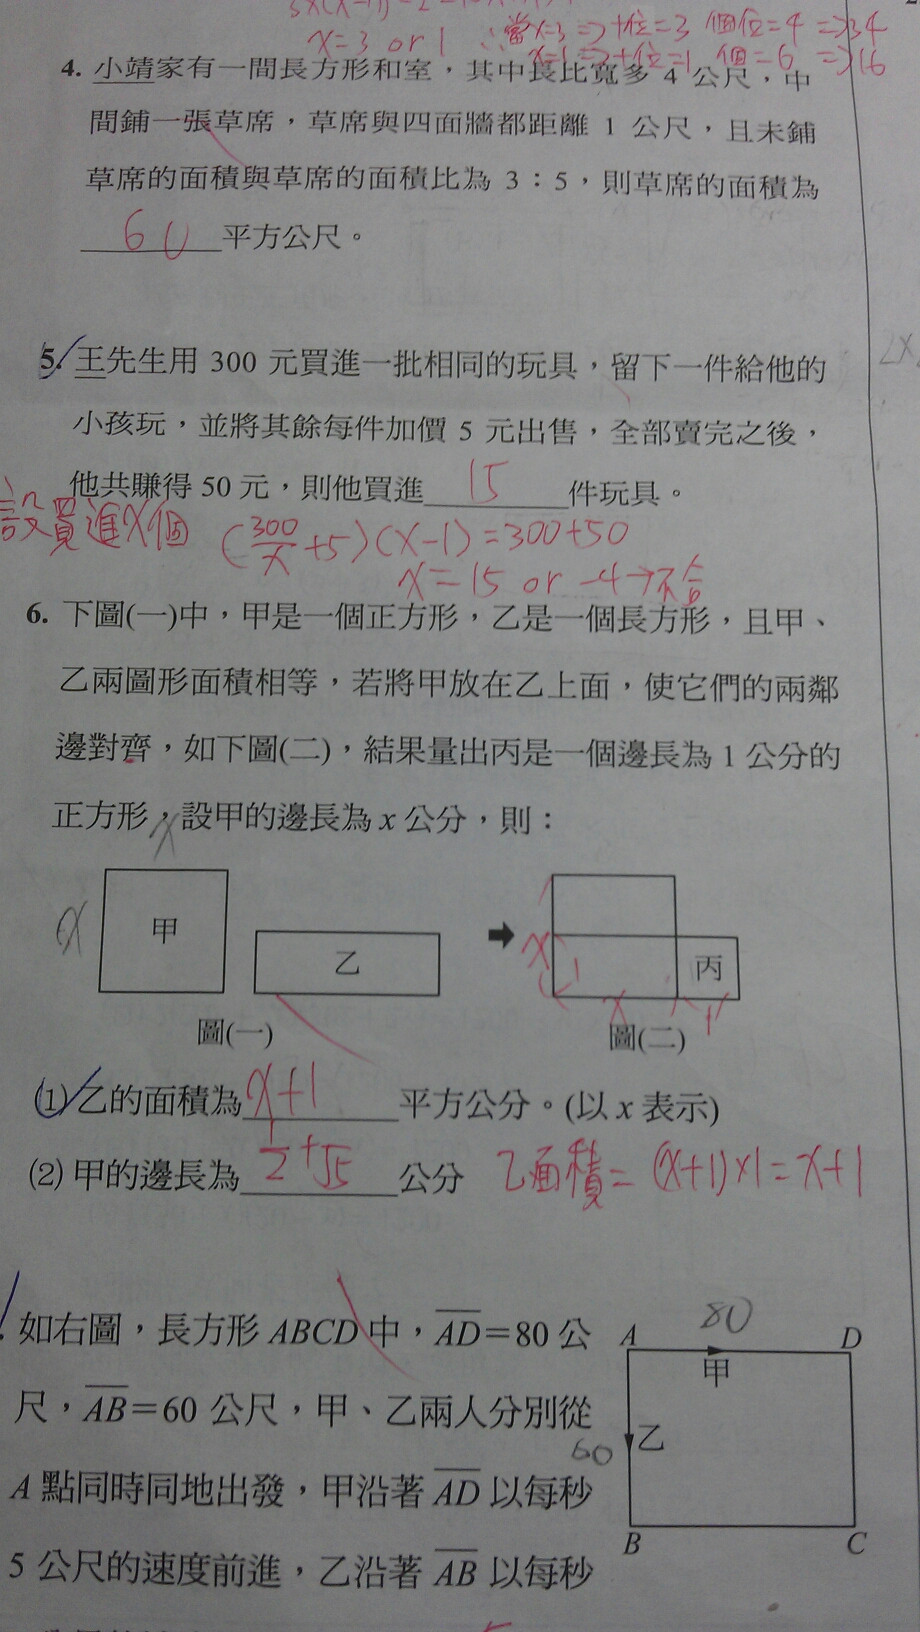 x=3 or 1 ∴當x=3⇒十位=3 個位=4 ⇒34
x=1⇒十位=1 個=6 ⇒16
4. 小靖家有一間長方形和室，其中長比寬多 4 公尺，中
間鋪一張草席，草席與四面牆都距離 1 公尺，且未鋪
草席的面積與草席的面積比為 3：5，則草席的面積為
60 平方公尺。
5. 王先生用 300 元買進一批相同的玩具，留下一件給他的
小孩玩，並將其餘每件加價 5 元出售，全部賣完之後，
他共賺得 50 元，則他買進 15 件玩具。
設買進x個 (300/x+5)(x-1)=300+50
x=15 or -4→不合
6. 下圖(一)中，甲是一個正方形，乙是一個長方形，且甲、
乙兩圖形面積相等，若將甲放在乙上面，使它們的兩鄰
邊對齊，如下圖(二)，結果量出丙是一個邊長為 1 公分的
正方形，設甲的邊長為 x 公分，則：
x
x 甲 乙 ➡ x 1 丙
x 1
圖(一) 圖(二)
(1) 乙的面積為 x+1 平方公分。(以 x 表示)
(2) 甲的邊長為 1+√5/2 公分 乙面積=(x+1)×1=x+1
如右圖，長方形 ABCD 中，AD=80 公
尺，AB=60 公尺，甲、乙兩人分別從
A 點同時同地出發，甲沿著 AD 以每秒
5 公尺的速度前進，乙沿著 AB 以每秒
80
A D
甲
60 乙
B C